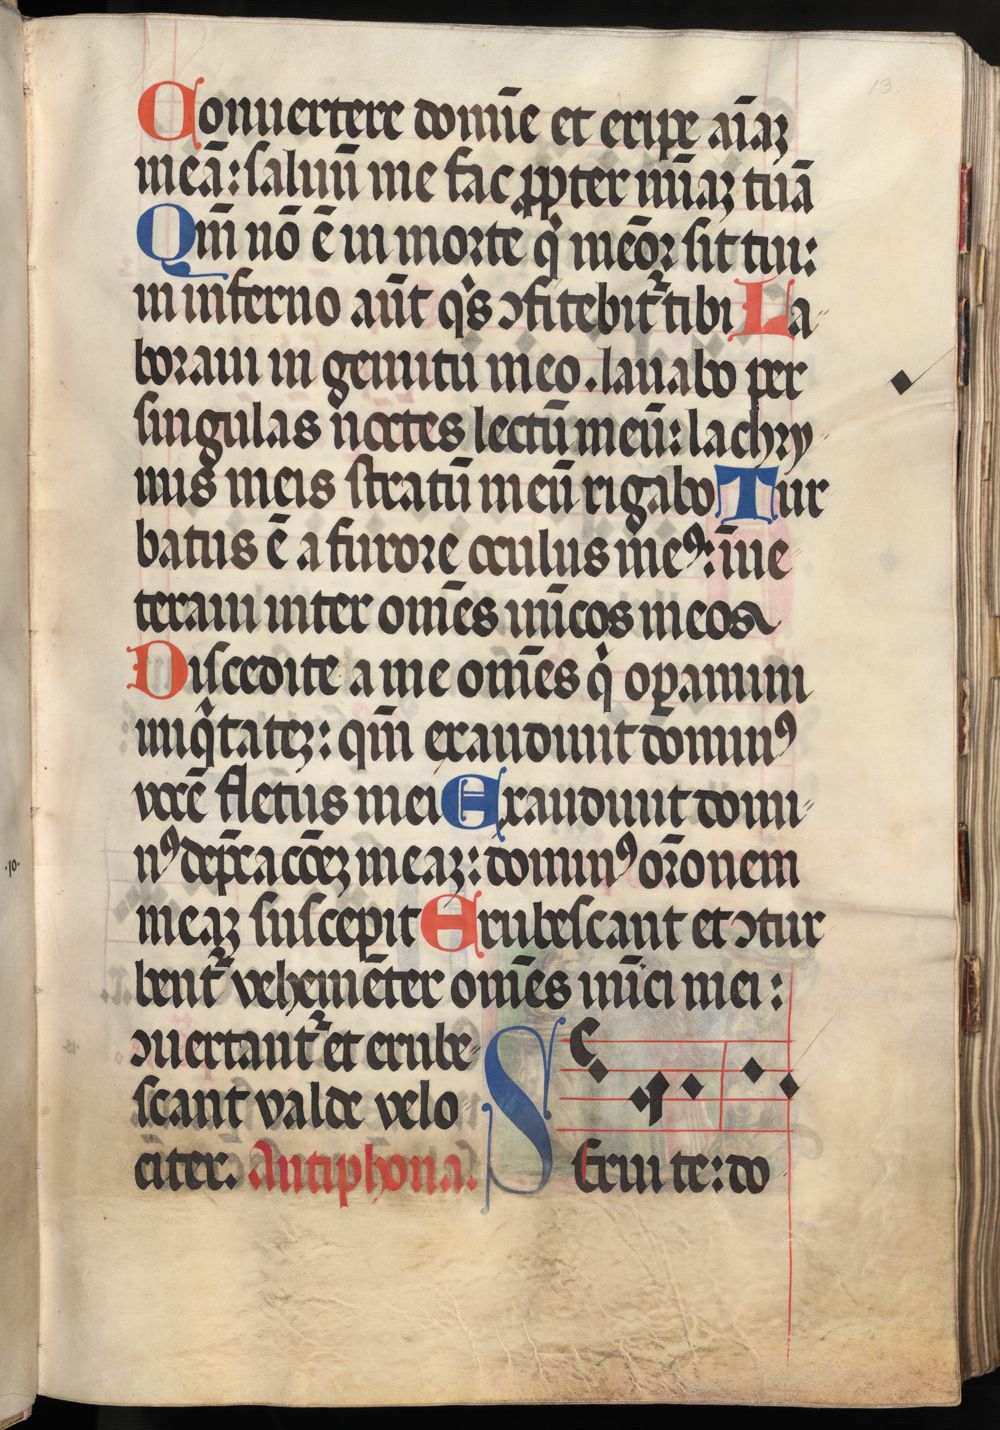 Conuertere domīe et eripe aīaʒ
meā: saluū me fac ꝓpter mīaʒ tuā
Qm̄ nō ē in morte q̇ meoꝝ sit tui:
in inferno aūt q̇s ꝯfitebit᷑ tibi La
boraui in gemitu meo. lauabo per
singulas noctes lectū meū: lachry
mis meis stratū meū rigabo Tur
batus ē a furore oculus meꝰ: īue
teraui inter om̄es inīcos meos
Discedite a me om̄es q̇ oꝑamini
iniq̇tateʒ: qm̄ exaudiuit dominꝰ
vocē fletus mei Exaudiuit domi
nꝰ dep̄cacōeʒ meaʒ: dominꝰ or̄onem
meaʒ suscepit Erubescant et ꝯtur
bent᷑ vehemēter om̄es inīci mei:
ꝯuertant᷑ et erube
scant valde velo
citer. Antiphona. S
erui te: do
13
.10.